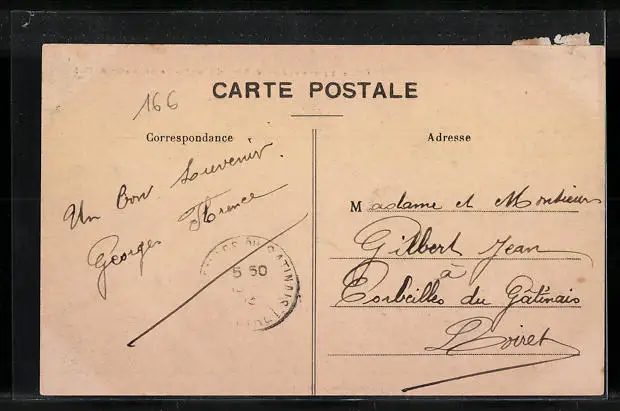 CARTE POSTALE
166
Correspondance
Adresse
Un bon Souvenir.
Georges
Madame et Monsieur
Gilbert Jean
à
Corbeilles du Gâtinais
Loiret
DU GATINAIS
5 50